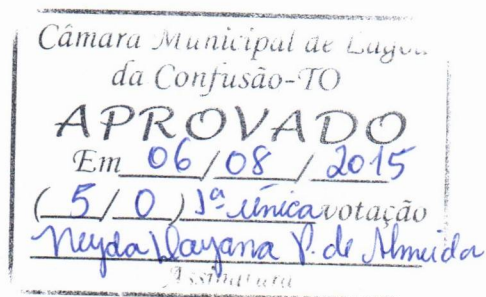 Câmara Municipal de Lagoa
da Confusão-TO
APROVADO
Em 06/08/2015
(5/0) 1ª única votação
Neyda Dayana P. de Almeida
Assinatura